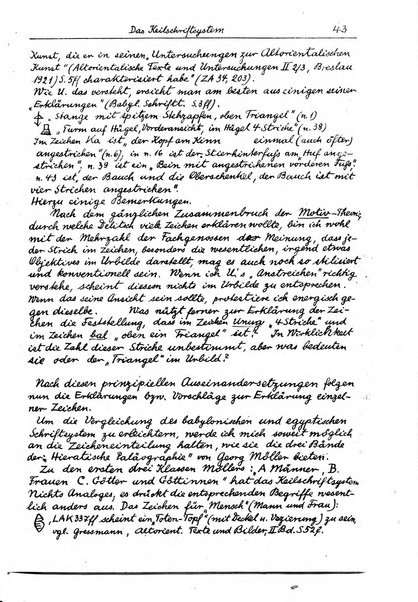 Das Keilschriftsystem 43
Kunst, die er in seinen „Untersuchungen zur Altorientalischen
Kunst" (Altorientalische Texte und Untersuchungen II 2/3, Breslau
1921) S.5ff charakterisiert habe" (ZA 34, 203).
Wie U. das versteht, ersieht man am besten aus einigen seiner
„Erklärungen" (Babyl. Schriftt. S.3ff).
„Stange mit spitzem Schzapfen, oben Triangel" (n.1)
„Turm auf Hügel, Vorderansicht, im Hügel 4 Striche" (n.38)
Im Zeichen Ka ist „der Kopf am Kinn einmal (auch öfter)
angestrichen" (n.6), in n.16 ist der „Stierhinterfuss am Huf ange-
strichen", n.39 ist ein „Bein mit angestrichenen vorderen Fuss".
n.43 ist „der Bauch und die Oberschenkel, der Bauch ist mit
vier Strichen angestrichen".
Hierzu einige Bemerkungen.
Nach dem gänzlichen Zusammenbruch der Motiv-Theorie,
durch welche Delitsch viele Zeichen erklären wollte, bin ich wohl
mit der Mehrzahl der Fachgenossen der Meinung, dass je-
der Strich im Zeichen, besonders die wesentlichen, irgend etwas
Objektives im Urbilde darstellt, mag es auch noch so stilisiert
und konventionell sein. Wenn ich U.'s „Anstreichen" richtig
verstehe, scheint diesem nichts im Urbilde zu entsprechen.
Wenn das seine Ansicht sein sollte, protestiere ich energisch ge-
gen dieselbe. Was nützt ferner zur Erklärung der Zei-
chen die Feststellung, dass im Zeichen Unug „4 Striche" und
im Zeichen bal „oben ein Triangel" ist? In Wirklichkeit
ist die Zahl dieser Striche unbestimmt, aber was bedeuten
sie oder der „Triangel" im Urbild?
Nach diesen prinzipiellen Auseinandersetzungen folgen
nun die Erklärungen bzw. Vorschläge zur Erklärung einzel-
ner Zeichen.
Um die Vergleichung des babylonischen und egyptischen
Schriftsystem zu erleichtern, werde ich mich soweit möglich
an die Zeicheneinteilung halten, wie sie die drei Bände
der „Hieratische Paläographie" von Georg Möller bieten.
Zu den ersten drei Klassen Möllers: „A Männer, B.
Frauen C. Götter und Göttinnen" hat das Keilschriftsystem
Nichts Analoges, es drückt die entsprechenden Begriffe wesent-
lich anders aus. Das Zeichen für „Mensch" (Mann und Frau):
„LAK 337ff scheint ein „Toten-Topf" (mit Deckel u. Verzierung) zu sein,
vgl. Gressmann, Altorient. Texte und Bilder, II Bd. S.52f.